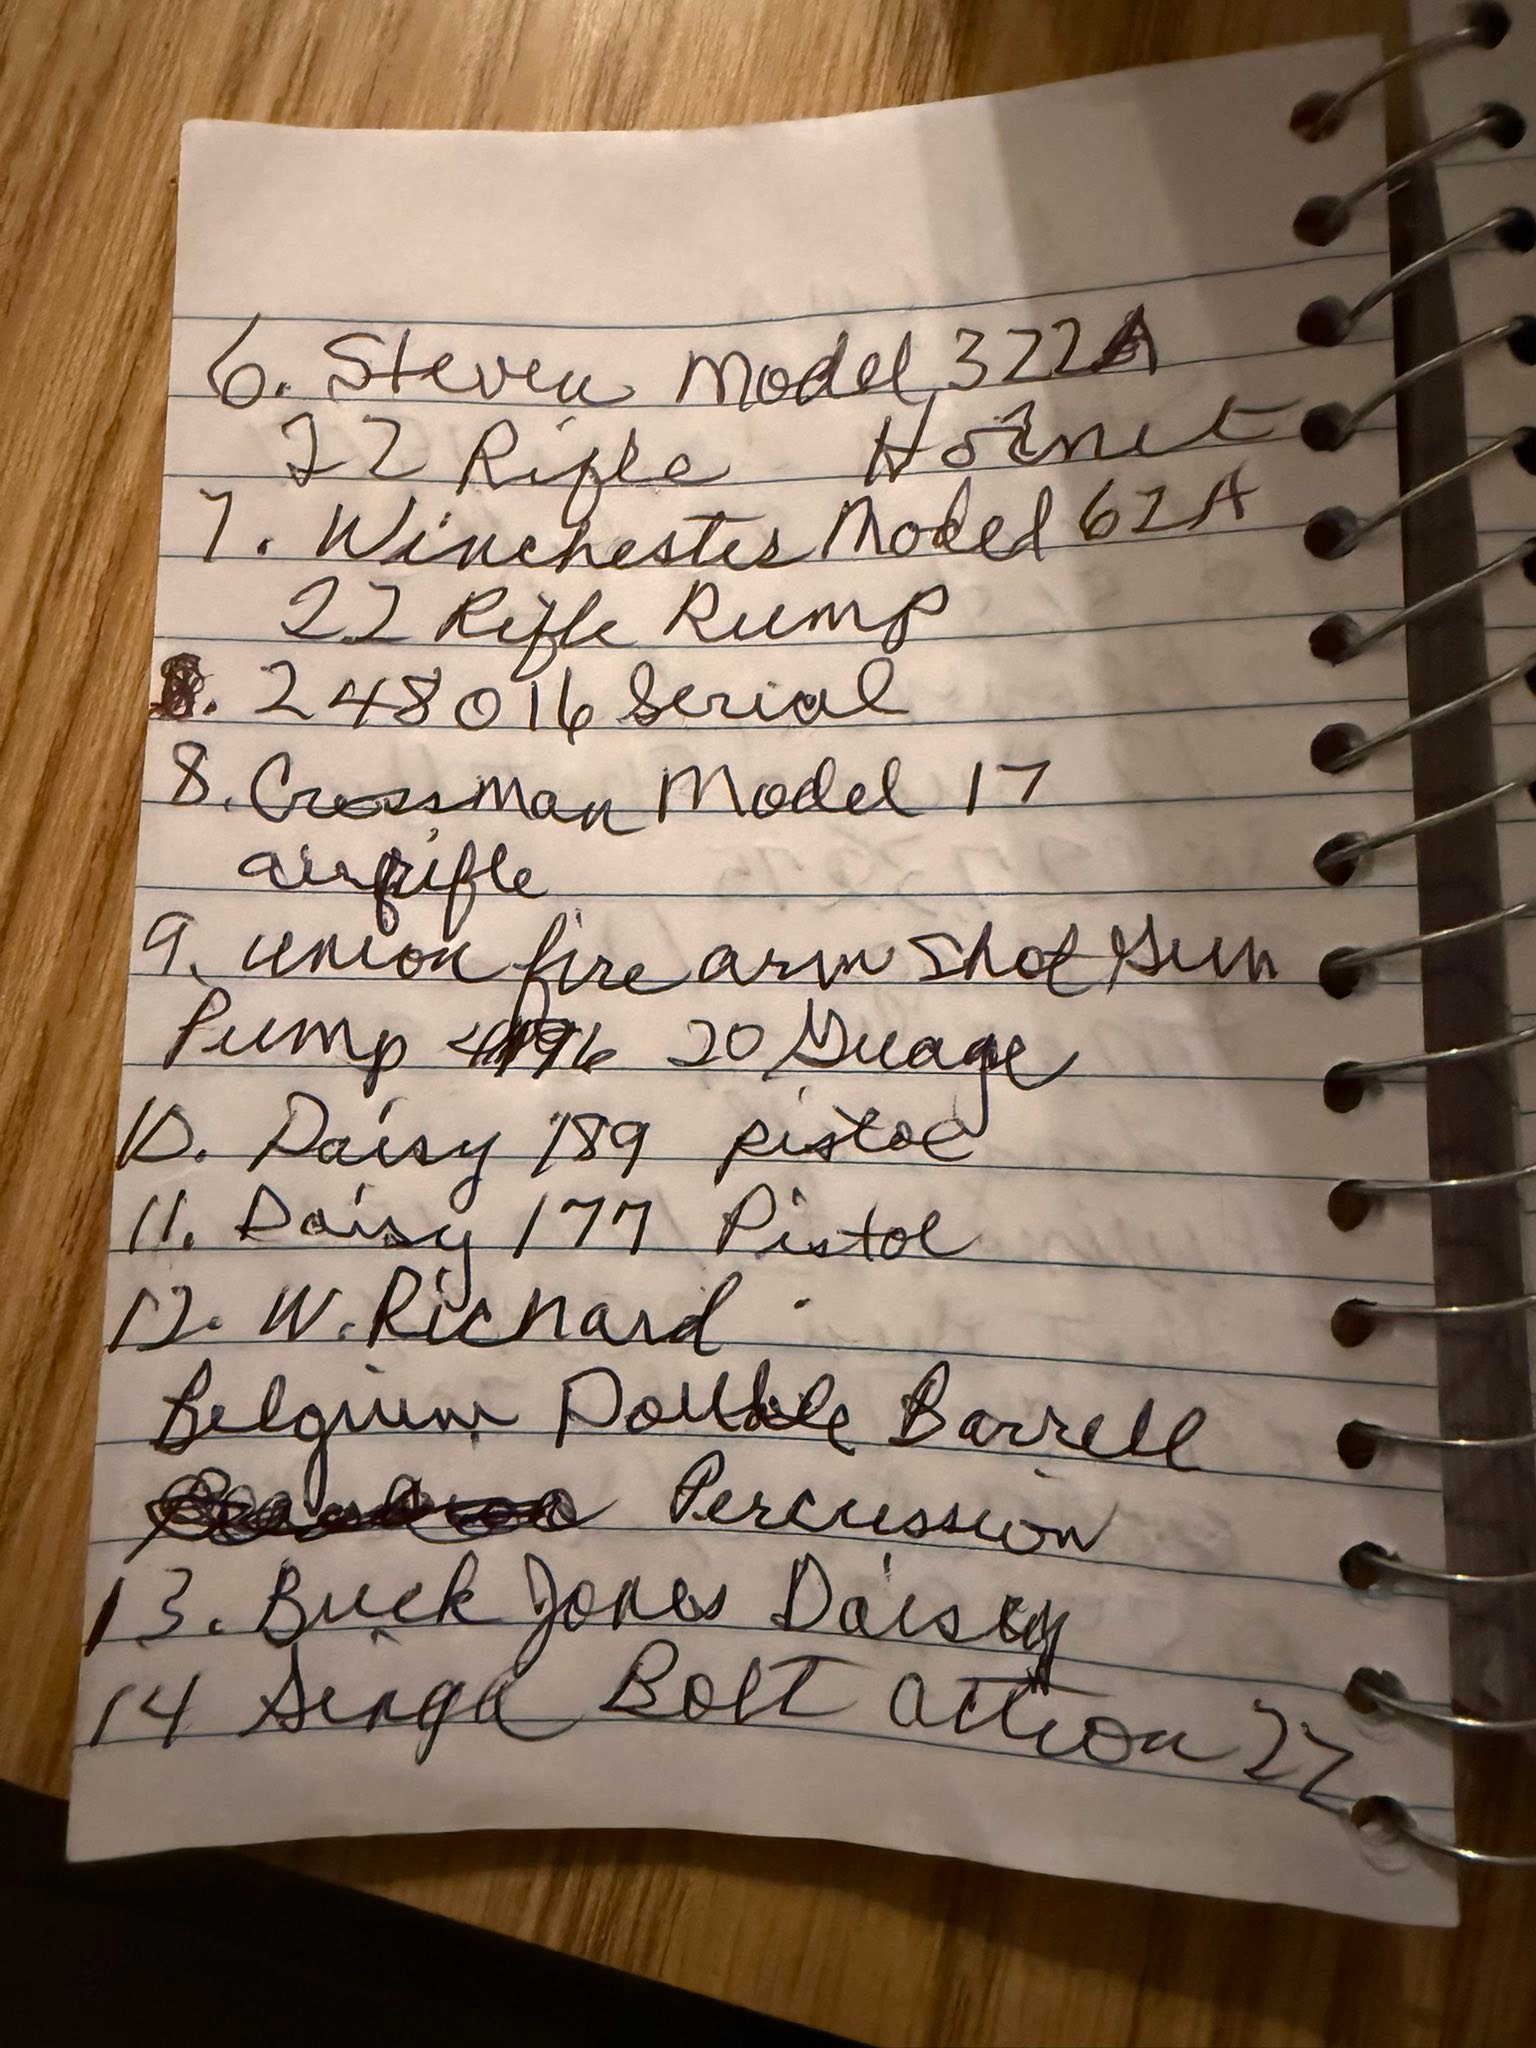 6. Steven Model 322A
22 Rifle Hornet
7. Winchester Model 62A
22 Rifle Pump
8. 248016 Serial
8. Crossman Model 17
air rifle
9. union fire arm Shot Gun
Pump 20 Guage
10. Daisy 189 pistol
11. Daisy 177 Pistol
12. W. Richard
Belgium Double Barrell
Percussion
13. Buck Jones Daisy
14 Bolt action 22